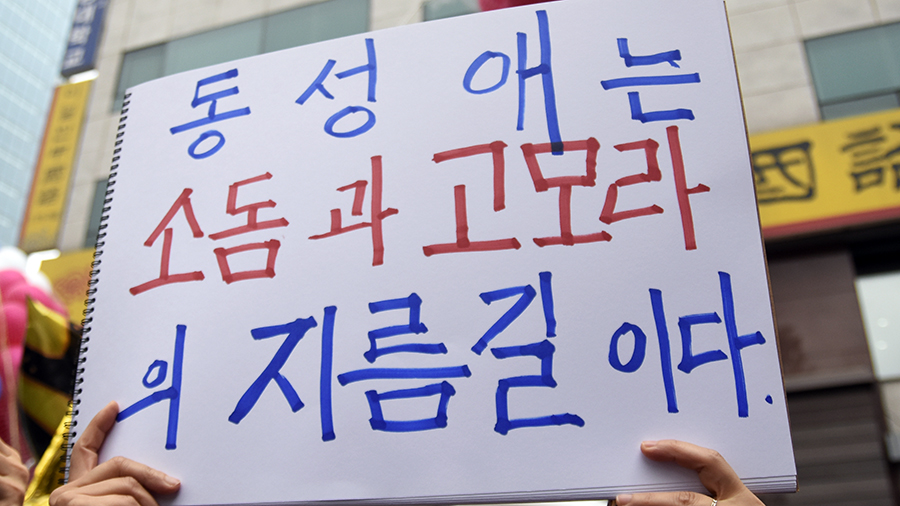 동성애는
소돔과 고모라
의 지름길이다.